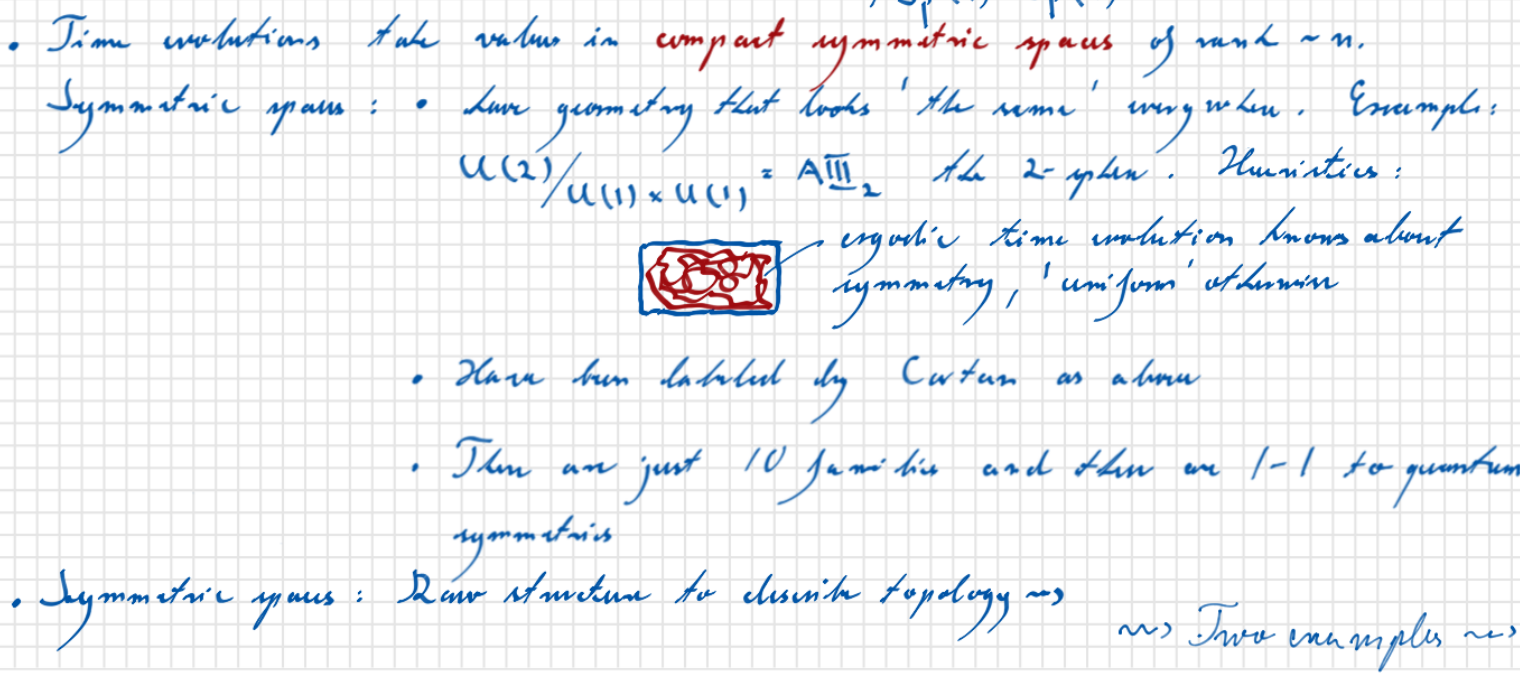 • Time evolutions take values in compact symmetric spaces of rank ~ n.
Symmetric spaces : • have geometry that looks 'the same' everywhere. Example:
U(2)/U(1) × U(1) = AIII₂ the 2-sphere. Heuristics:
ergodic time evolution knows about
symmetry, 'uniform' otherwise
• Have been labeled by Cartan as above
• There are just 10 families and these are 1-1 to quantum
symmetries
• Symmetric spaces : Raw structure to describe topology ⇝
⇝ Two examples ⇝